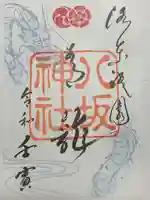 洛東祇園
八坂神社
青龍
令和壬寅